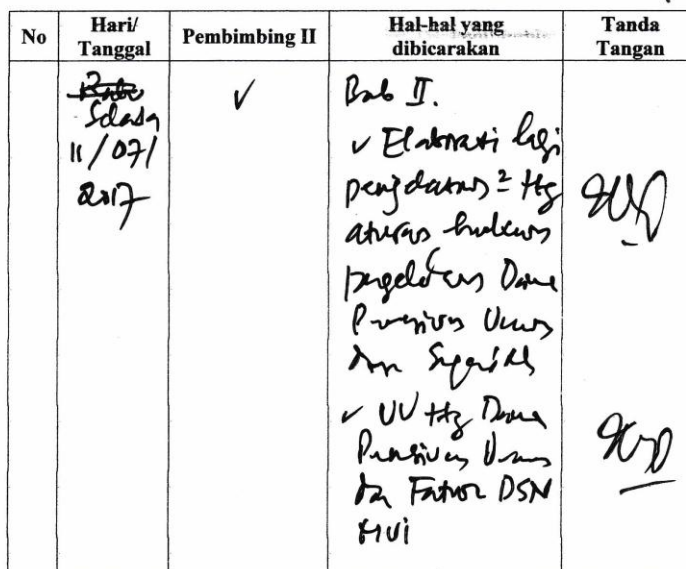 No
Hari/
Tanggal
Pembimbing II
Hal-hal yang
dibicarakan
Tanda
Tangan
Selasa
11/07/
2017
✓
Bab II.
✓ Elaborasi lagi
ttg
aturan hukum
pengelolaan Dana
Pensiun Umum
dan Syariah
✓ UU ttg Dana
Pensiun Umum
dan Fatwa DSN
MUI